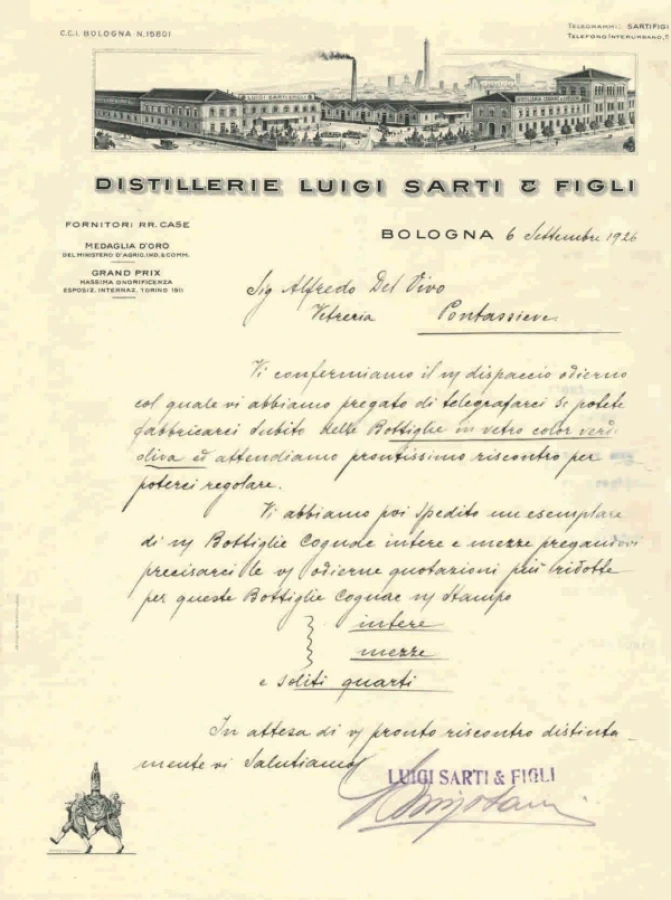 C.C.I. BOLOGNA N. 15801
TELEGRAMMI: SARTIFIGLI
TELEFONO INTERURBANO,
LUIGI SARTI & FIGLI
DISTILLERIE LUIGI SARTI & FIGLI
FORNITORI RR. CASE
MEDAGLIA D'ORO
DEL MINISTERO D'AGRIC. IND. & COMM.
GRAND PRIX
MASSIMA ONORIFICENZA
ESPOSIZ. INTERNAZ. TORINO 1911
BOLOGNA 6 Settembre 1926
Sig Alfredo Del Vivo
Vetreria Pontassieve
Vi confermiamo il n/ dispaccio odierno
col quale vi abbiamo pregato di telegrafarci se potete
fabbricarci subito delle Bottiglie in vetro color verde
oliva ed attendiamo prontissimo riscontro per
poterci regolare.
Vi abbiamo poi spedito un esemplare
di n/ Bottiglie Cognac intere e mezze pregandovi
precisarci le v/ odierne quotazioni più ridotte
per queste Bottiglie Cognac n/ stampo
intere
mezze
e soliti quarti
In attesa di v/ pronto riscontro distinta-
mente vi salutiamo
LUIGI SARTI & FIGLI